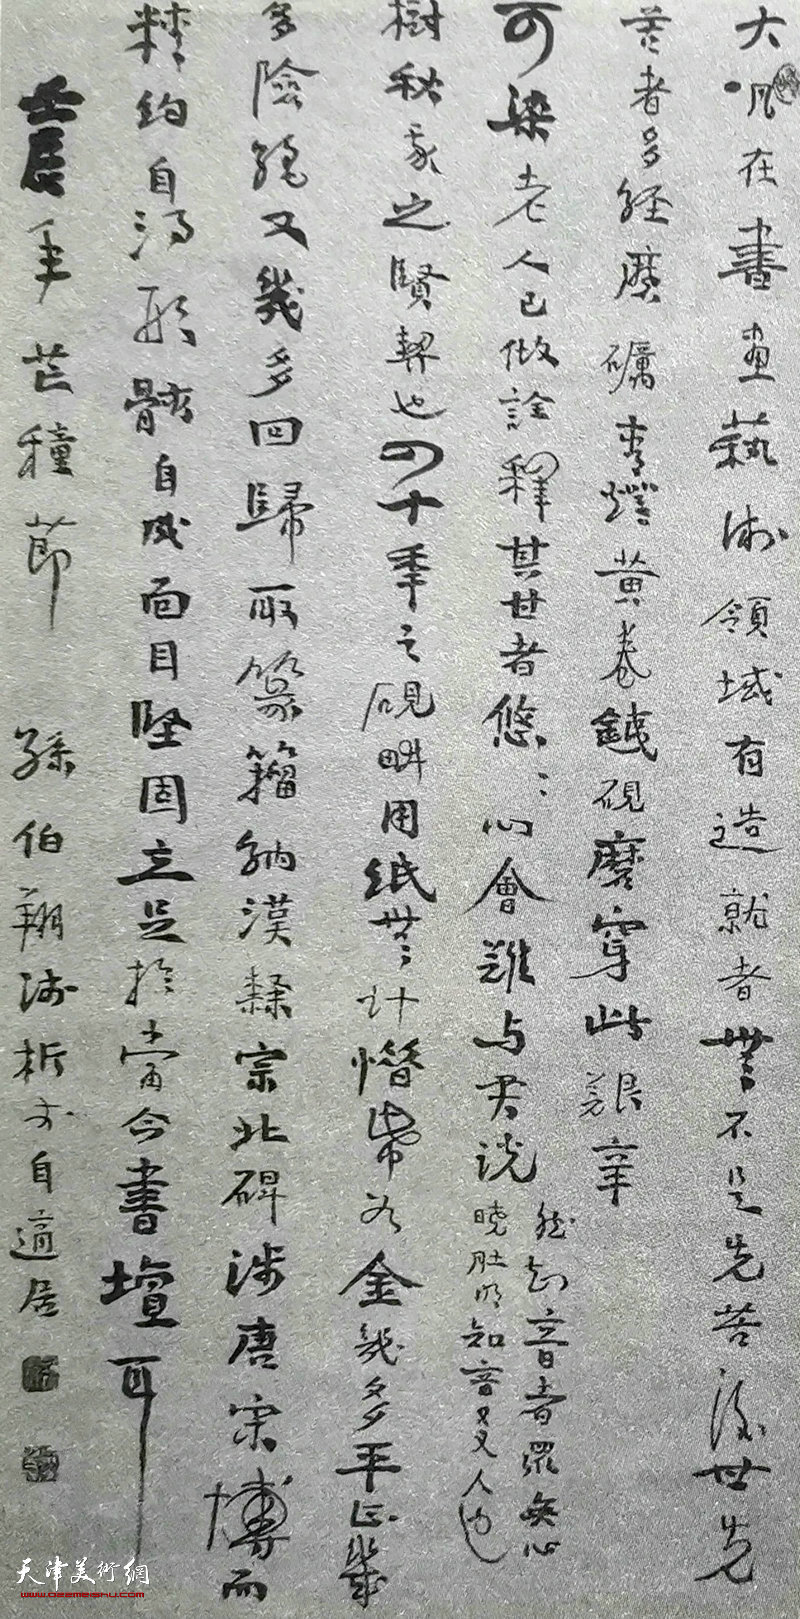 大凡在書畫藝術領域有造就者無不是先苦後甘先
苦者多經磨礪青燈黃卷鐵硯磨穿此艱辛
可染老人已做詮釋其甘者悠悠心會難与君説
然知音者眾無心
曉肚明知音又又人也
樹秋我之賢契也四十年之硯畔用紙無計惜墨如金幾多平正幾
多險絕又幾多回歸取篆籀納漢隸宗北碑涉唐宋博而
精約自得形骸自成面目堅固立足於當今書壇耳
壬辰年芒種節 孫伯翔浅析於自適居
天津美術網
www.022meishu.com